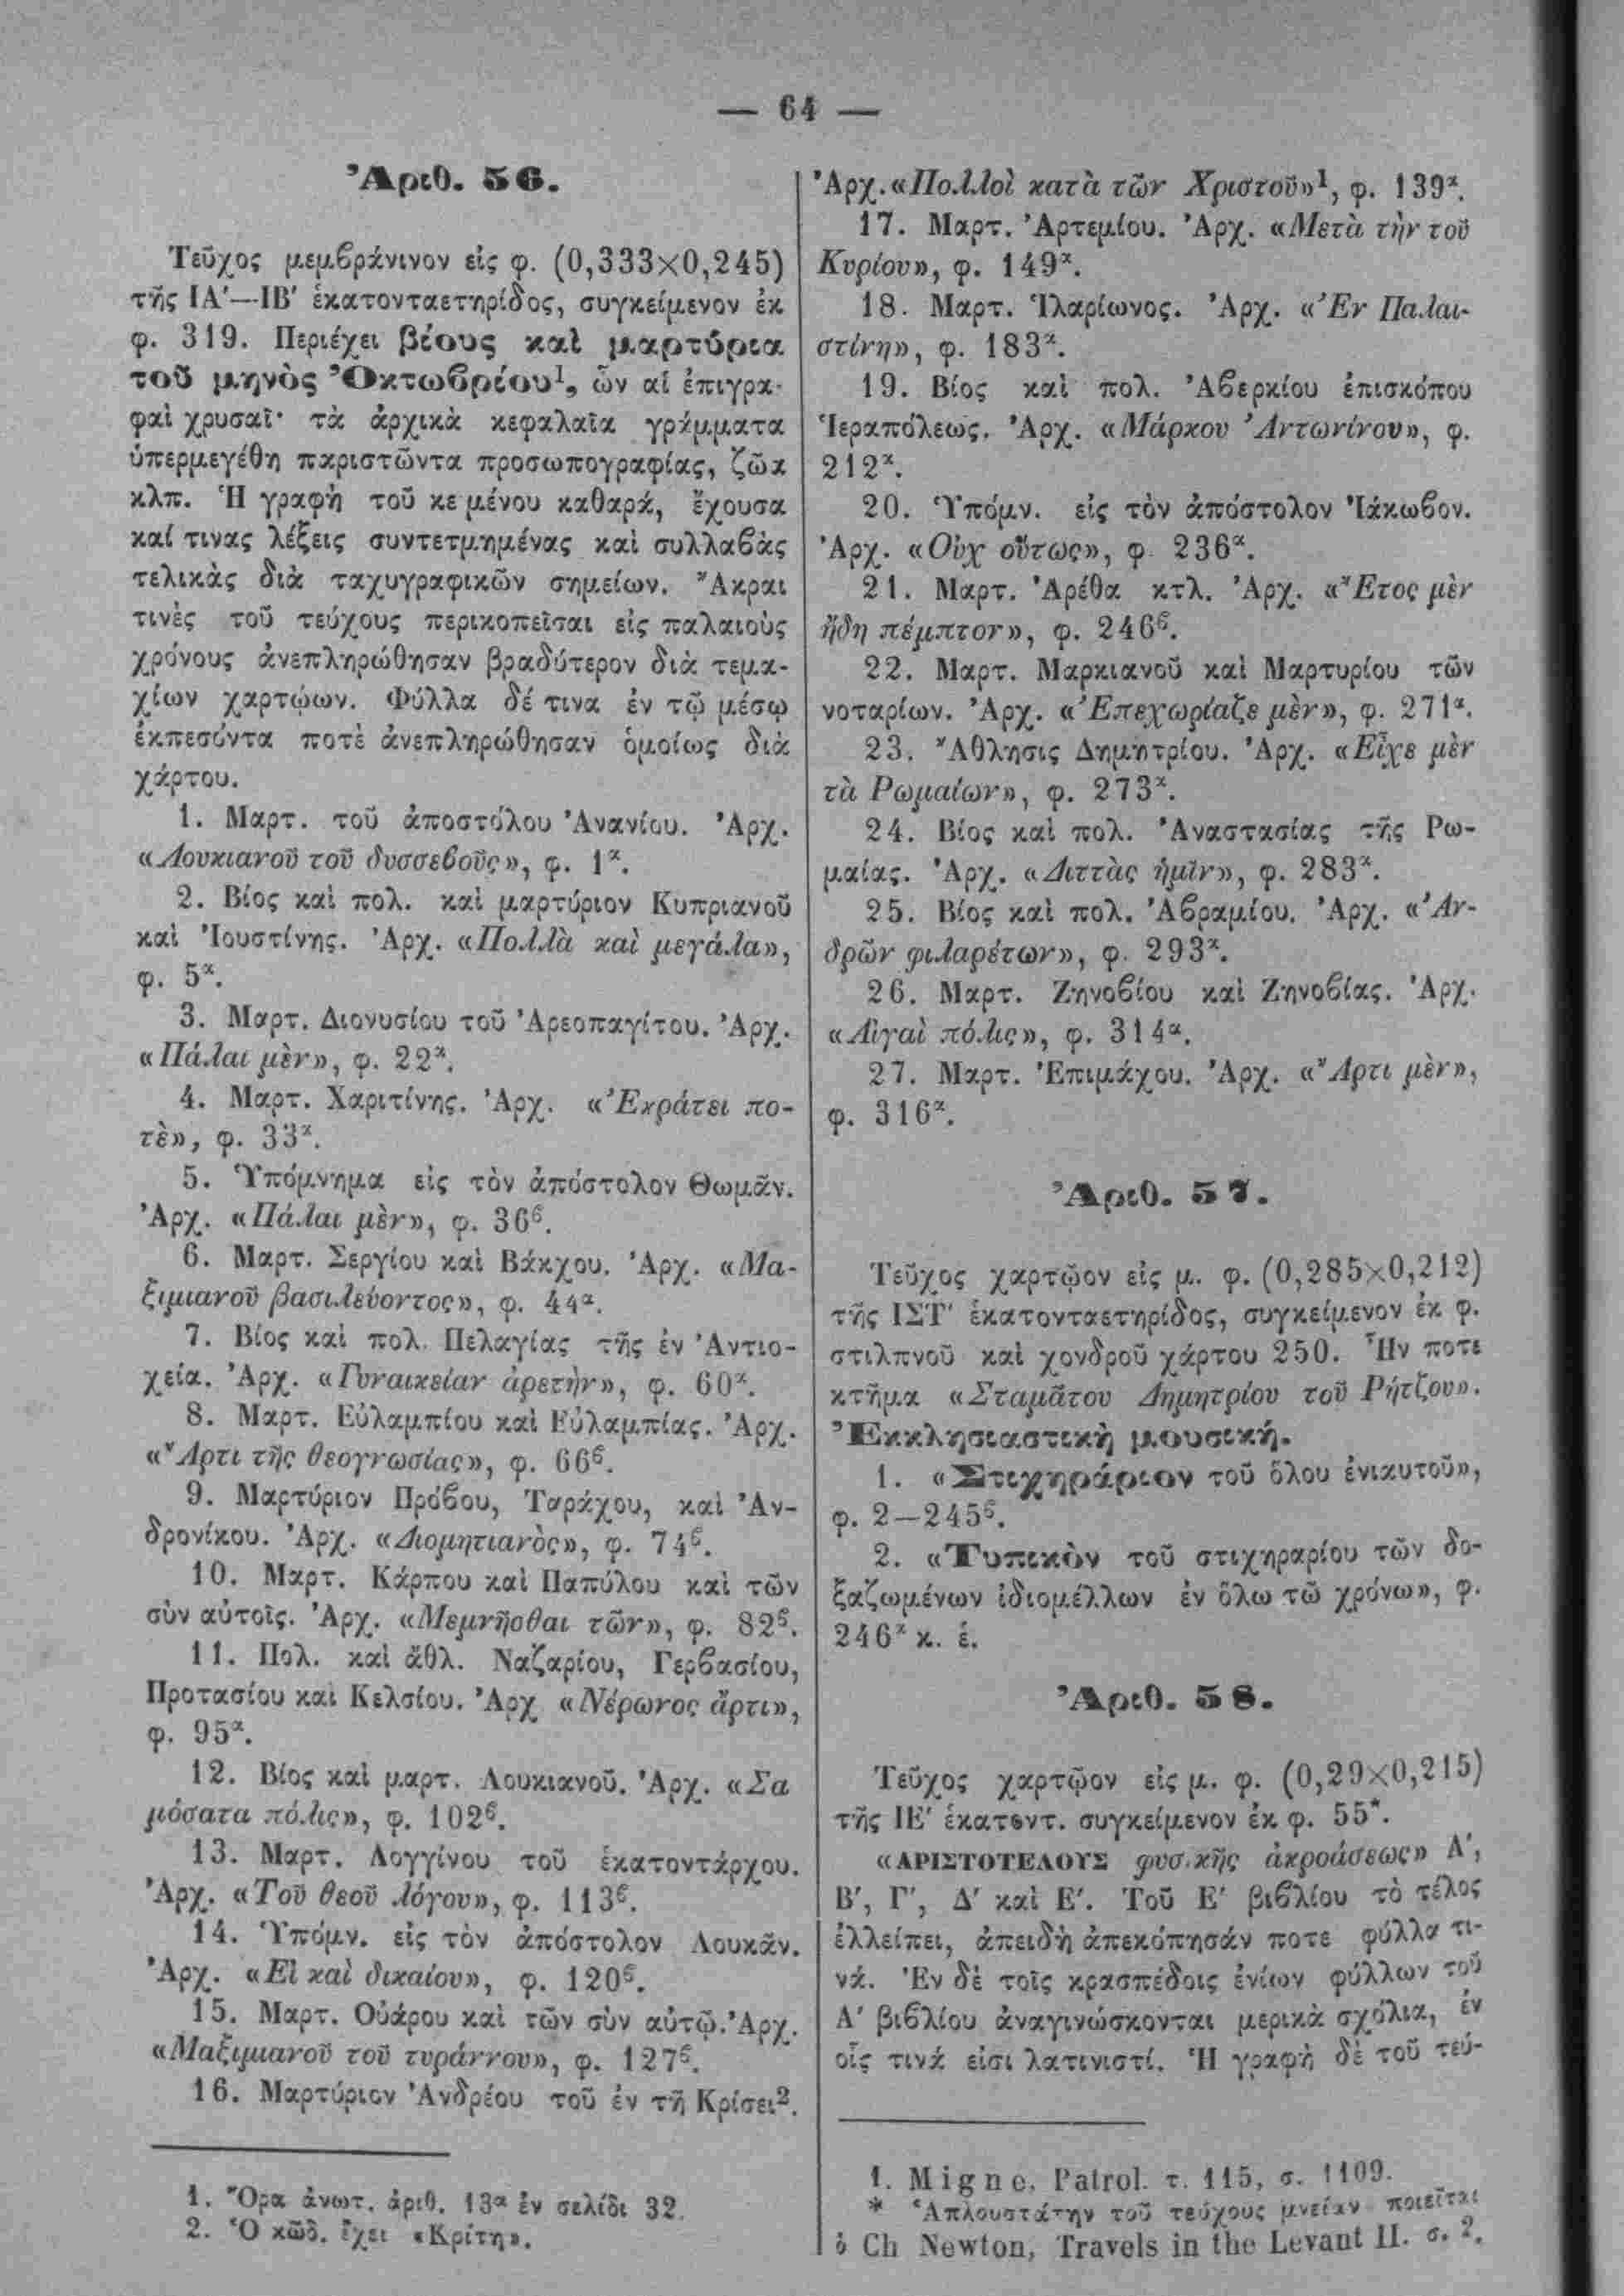 — 64 —
Ἀριθ. 56.
Τεῦχος μεμβράνινον εἰς φ. (0,333×0,245)
τῆς ΙΑ΄—ΙΒ΄ ἑκατονταετηρίδος, συγκείμενον ἐκ
φ. 319. Περιέχει βίους καὶ μαρτύρια
τοῦ μηνὸς Ὀκτωβρίου¹, ὧν αἱ ἐπιγρα-
φαὶ χρυσαῖ· τὰ ἀρχικὰ κεφαλαῖα γράμματα
ὑπερμεγέθη παριστῶντα προσωπογραφίας, ζῶα
κλπ. Ἡ γραφὴ τοῦ κε μένου καθαρά, ἔχουσα
καί τινας λέξεις συντετμημένας καὶ συλλαβὰς
τελικὰς διὰ ταχυγραφικῶν σημείων. Ἄκραι
τινὲς τοῦ τεύχους περικοπεῖσαι εἰς παλαιοὺς
χρόνους ἀνεπληρώθησαν βραδύτερον διὰ τεμα-
χίων χαρτῴων. Φύλλα δέ τινα ἐν τῷ μέσῳ
ἐκπεσόντα ποτὲ ἀνεπληρώθησαν ὁμοίως διὰ
χάρτου.
1. Μαρτ. τοῦ ἀποστόλου Ἀνανίου. Ἀρχ.
«Λουκιανοῦ τοῦ δυσσεβοῦς», φ. 1ᵅ.
2. Βίος καὶ πολ. καὶ μαρτύριον Κυπριανοῦ
καὶ Ἰουστίνης. Ἀρχ. «Πολλὰ καὶ μεγάλα»,
φ. 5ᵅ.
3. Μαρτ. Διονυσίου τοῦ Ἀρεοπαγίτου. Ἀρχ.
«Πάλαι μὲν», φ. 22ᵅ.
4. Μαρτ. Χαριτίνης. Ἀρχ. «Ἐκράτει πο-
τὲ», φ. 33ᵅ.
5. Ὑπόμνημα εἰς τὸν ἀπόστολον Θωμᾶν.
Ἀρχ. «Πάλαι μὲν», φ. 36ᵝ.
6. Μαρτ. Σεργίου καὶ Βάκχου. Ἀρχ. «Μα-
ξιμιανοῦ βασιλεύοντος», φ. 44ᵅ.
7. Βίος καὶ πολ. Πελαγίας τῆς ἐν Ἀντιο-
χεία. Ἀρχ. «Γυναικείαν ἀρετὴν», φ. 60ᵅ.
8. Μαρτ. Εὐλαμπίου καὶ Εὐλαμπίας. Ἀρχ.
«Ἄρτι τῆς θεογνωσίας», φ. 66ᵝ.
9. Μαρτύριον Πρόβου, Ταράχου, καὶ Ἀν-
δρονίκου. Ἀρχ. «Διομητιανὸς», φ. 74ᵝ.
10. Μαρτ. Κάρπου καὶ Παπύλου καὶ τῶν
σὺν αὐτοῖς. Ἀρχ. «Μεμνῆσθαι τῶν», φ. 82ᵝ.
11. Πολ. καὶ ἄθλ. Ναζαρίου, Γερβασίου,
Προτασίου και Κελσίου. Ἀρχ «Νέρωνος ἄρτι»,
φ. 95ᵅ.
12. Βίος καὶ μαρτ. Λουκιανοῦ. Ἀρχ. «Σα
μόσατα πόλις», φ. 102ᵝ.
13. Μαρτ. Λογγίνου τοῦ ἑκατοντάρχου.
Ἀρχ. «Τοῦ θεοῦ λόγου», φ. 113ᵝ.
14. Ὑπόμν. εἰς τὸν ἀπόστολον Λουκᾶν.
Ἀρχ. «Εἰ καὶ δικαίου», φ. 120ᵝ.
15. Μαρτ. Οὐάρου καὶ τῶν σὺν αὐτῷ. Ἀρχ.
«Μαξιμιανοῦ τοῦ τυράννου», φ. 127ᵝ.
16. Μαρτύριον Ἀνδρέου τοῦ ἐν τῇ Κρίσει².
1. Ὅρα ἀνωτ. ἀριθ. 13ᵅ ἐν σελίδι 32.
2. Ὁ κῶδ. ἔχει «Κρίτη».
Ἀρχ. «Πολλοὶ κατὰ τῶν Χριστοῦ»¹, φ. 139ᵅ.
17. Μαρτ. Ἀρτεμίου. Ἀρχ. «Μετὰ τὴν τοῦ
Κυρίου», φ. 149ᵅ.
18. Μαρτ. Ἱλαρίωνος. Ἀρχ. «Ἐν Παλαι-
στίνη», φ. 183ᵅ.
19. Βίος καὶ πολ. Ἀβερκίου ἐπισκόπου
Ἱεραπόλεως. Ἀρχ. «Μάρκου Ἀντωνίνου», φ.
212ᵅ.
20. Ὑπόμν. εἰς τὸν ἀπόστολον Ἰάκωβον.
Ἀρχ. «Οὐχ οὕτως», φ. 236ᵅ.
21. Μαρτ. Ἀρέθα κτλ. Ἀρχ. «Ἔτος μὲν
ἤδη πέμπτον», φ. 246ᵝ.
22. Μαρτ. Μαρκιανοῦ καὶ Μαρτυρίου τῶν
νοταρίων. Ἀρχ. «Ἐπεχωρίαζε μὲν», φ. 271ᵅ.
23. Ἄθλησις Δημητρίου. Ἀρχ. «Εἶχε μὲν
τὰ Ρωμαίων», φ. 273ᵅ.
24. Βίος καὶ πολ. Ἀναστασίας τῆς Ρω-
μαίας. Ἀρχ. «Διττὰς ἡμῖν», φ. 283ᵅ.
25. Βίος καὶ πολ. Ἀβραμίου. Ἀρχ. «Ἀν-
δρῶν φιλαρέτων», φ. 293ᵅ.
26. Μαρτ. Ζηνοβίου καὶ Ζηνοβίας. Ἀρχ.
«Αἰγαὶ πόλις», φ. 314ᵅ.
27. Μαρτ. Ἐπιμάχου. Ἀρχ. «Ἄρτι μὲν»,
φ. 316ᵅ.
Ἀριθ. 57.
Τεῦχος χαρτῷον εἰς μ. φ. (0,285×0,212)
τῆς ΙΣΤ΄ ἑκατονταετηρίδος, συγκείμενον ἐκ φ.
στιλπνοῦ καὶ χονδροῦ χάρτου 250. Ἦν ποτε
κτῆμα «Σταμᾶτου Δημητρίου τοῦ Ρήτζου».
Ἐκκλησιαστικὴ μουσική.
1. «Στιχηράριον τοῦ ὅλου ἐνιαυτοῦ»,
φ. 2—245ᵝ.
2. «Τυπικὸν τοῦ στιχηραρίου τῶν δο-
ξαζωμένων ἰδιομέλλων ἐν ὅλω τῶ χρόνω», φ.
246ᵅ κ. ἑ.
Ἀριθ. 58.
Τεῦχος χαρτῷον εἰς μ. φ. (0,29×0,215)
τῆς ΙΕ΄ ἑκατοντ. συγκείμενον ἐκ φ. 55*.
«ΑΡΙΣΤΟΤΕΛΟΥΣ φυσικῆς ἀκροάσεως» Α΄,
Β΄, Γ΄, Δ΄ καὶ Ε΄. Τοῦ Ε΄ βιβλίου τὸ τέλος
ἐλλείπει, ἀπειδὴ ἀπεκόπησάν ποτε φύλλα τι-
νά. Ἐν δὲ τοῖς κρασπέδοις ἐνίων φύλλων τοῦ
Α΄ βιβλίου ἀναγινώσκονται μερικὰ σχόλια, ἐν
οἷς τινά εἰσι λατινιστί. Ἡ γραφὴ δὲ τοῦ τεύ-
1. Migne, Patrol. τ. 115, σ. 1109.
* Ἁπλουστάτην τοῦ τεύχους μνείαν ποιεῖται
ὁ Ch Newton, Travels in the Levant II. σ. 2.